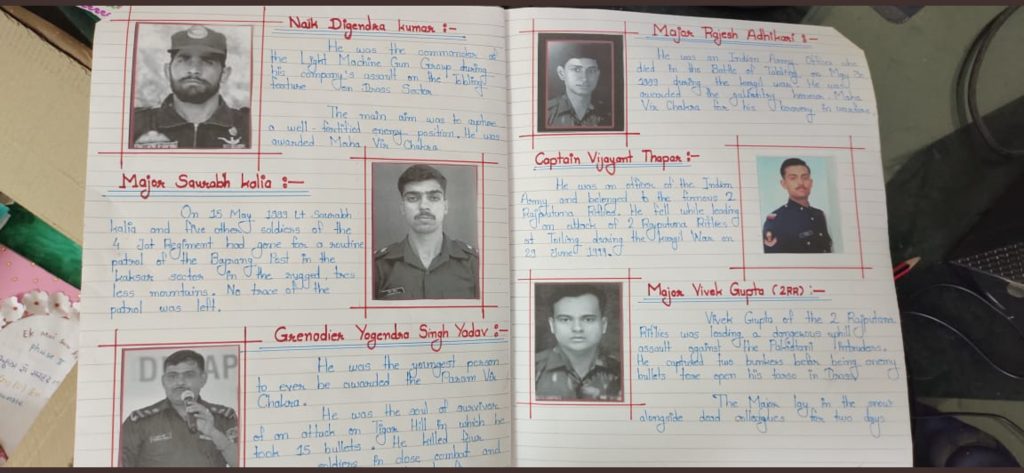 Naik Digendra kumar :-
He was the commander of
the Light Machine Gun Group during
his company's assault on the Tololing
feature in Drass Sector
The main aim was to capture
a well-fortified enemy position. He was
awarded Maha Vir Chakra
Major Saurabh kalia :-
On 15 May 1999 Lt Saurabh
kalia and five other soldiers of the
4 Jat Regiment had gone for a routine
patrol of the Bajrang Post in the
kaksar sector in the rugged, tres
less mountains. No trace of the
patrol was left.
Grenadier Yogendra Singh Yadav :-
He was the youngest person
to ever be awarded the Param Vir
Chakra.
He was the soul of survivor
of an attack on Tigar Hill in which he
took 15 bullets. He killed four
soldiers in close combat and
Major Rajesh Adhikari :-
He was an Indian Army Officer who
died in the Battle of Tololing on May 30
1999 during the kargil war. He was
awarded the gallantry honour Maha
Vir Chakra for his bravery in wartime.
Captain Vijayant Thapar :-
He was an officer of the Indian
Army and belonged to the famous 2
Rajputana Rifles. He fell while leading
an attack of 2 Rajputana Rifles
at Toiling during the kargil War on
29 June 1999.
Major Vivek Gupta (2RR) :-
Vivek Gupta of the 2 Rajputana
Rifles was leading a dangerous uphill
assault against the Pakistani intruders.
He captured two bunkers before being enemy
bullets tore open his torso in Drass
The Major lay in the snow
alongside dead colleagues for two days
Ek
phase